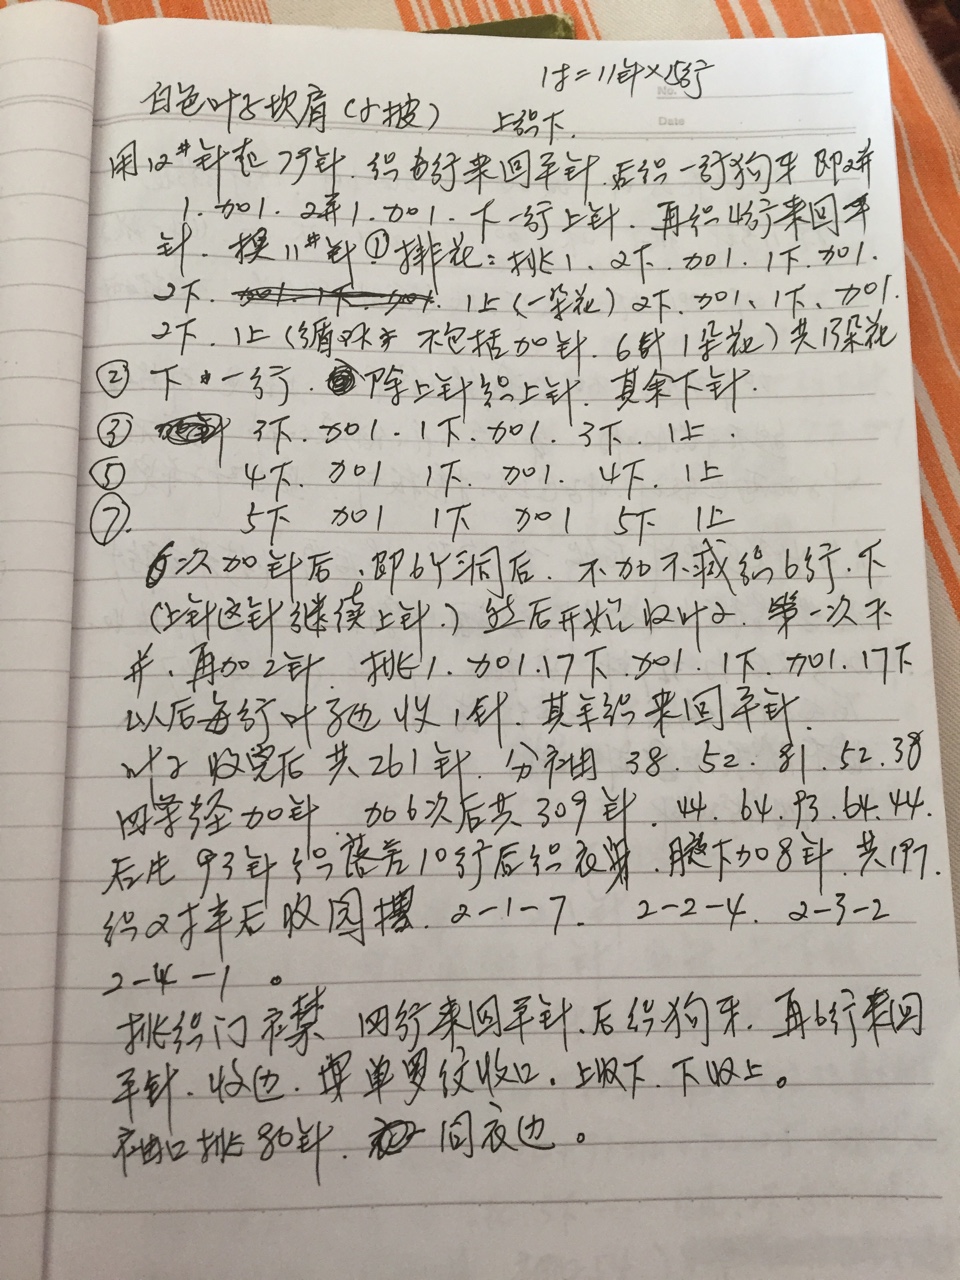 1寸=11针×15行
No.
白色叶子坎肩(小披)
上织下.
Date
用12#针起79针.织6行来回平针.后织一行狗牙即2并
1.加1.2并1.加1.下一行上针.再织4行来回平
针.换11#针①排花:挑1.2下.加1.1下.加1.
2下.1上(一朵花)2下.加1、1下、加1.
2下.1上(循环 不包括加针.6针1朵花)共13朵花
② 下 一行.除上针织上针.其余下针.
③ 3下.加1.1下.加1.3下.1上.
⑤ 4下.加1 1下.加1.4下.1上
⑦. 5下 加1 1下 加1 5下 1上
6次加针后、即6个洞后.不加不减织6行.下
(上针这针继续上针.)然后开始收叶子.第一次不
并、再加2针 挑1.加1.17下.加1.1下.加1.17下
以后每行叶子边收1针.其余织来回平针.
叶子收完后共261针.分袖 38.52.81.52.38
四学径加针 加6次后共309针.44.64.93.64.44.
后片93针织落差10行后织衣身.腋下加8针.共197.
织2寸半后收圆摆.2-1-7. 2-2-4. 2-3-2
2-4-1。
挑织门襟 四行来回平针.后织狗牙.再6行来回
平针.收边.单罗纹收口.上收下.下收上。
袖口挑80针. 同衣边。